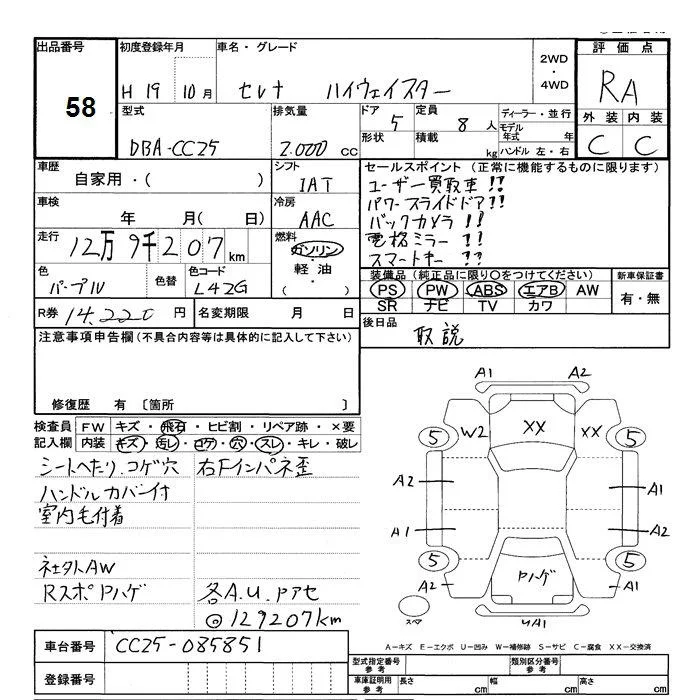 出品番号 58
初度登録年月 H 19 10月
車名・グレード セレナ ハイウェイスター
2WD・4WD
評価点 RA
外装 内装
C C
型式 DBA-CC25
排気量 2.000 cc
ドア 5
形状
定員 8 人
積載 kg
ディーラー・並行
モデル年式 年
ハンドル 左・右
車歴 自家用・( )
シフト IAT
車検 年 月( 日)
冷房 AAC
走行 12万9千207km
燃料 ガソリン・軽油・( )
色 パープル
色替
色コード L42G
R券 14,220円
名変期限 月 日
セールスポイント(正常に機能するものに限ります)
ユーザー買取車!!
パワースライドドア!!
バックカメラ!!
電格ミラー!!
スマートキー!!
装備品(純正品に限り○をつけてください)
PS PW ABS エアB AW
SR ナビ TV カワ
新車保証書
有・無
後日品 取説
注意事項申告欄(不具合内容等は具体的に記入して下さい)
修復歴 有〔箇所 〕
検査員記入欄
FW キズ・飛石・ヒビ割・リペア跡・×要
内装 キズ・汚レ・コゲ・穴・スレ・キレ・破レ
シートへたり.コゲ穴
ハンドルカバー付
室内毛付着
社外AW
RスポPハゲ
右Fインパネ歪
各A.U.Pアセ
◎129207km
車台番号 CC25-085851
登録番号
A1 A2
5 W2 XX XX 5
A2 A1
A1 A2
5 5
A2 Pハゲ A1
スペア
UA1
A-キズ E-エクボ U-凹み W-補修跡 S-サビ C-腐食 XX-交換済
型式指定番号 参考
類別区分番号 参考
車庫証明用 参考 長さ cm 幅 cm 高さ cm